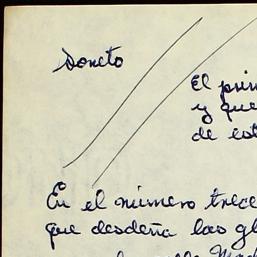 Soneto
El prin
y que
de est
En el número trece
que desdeña las gl